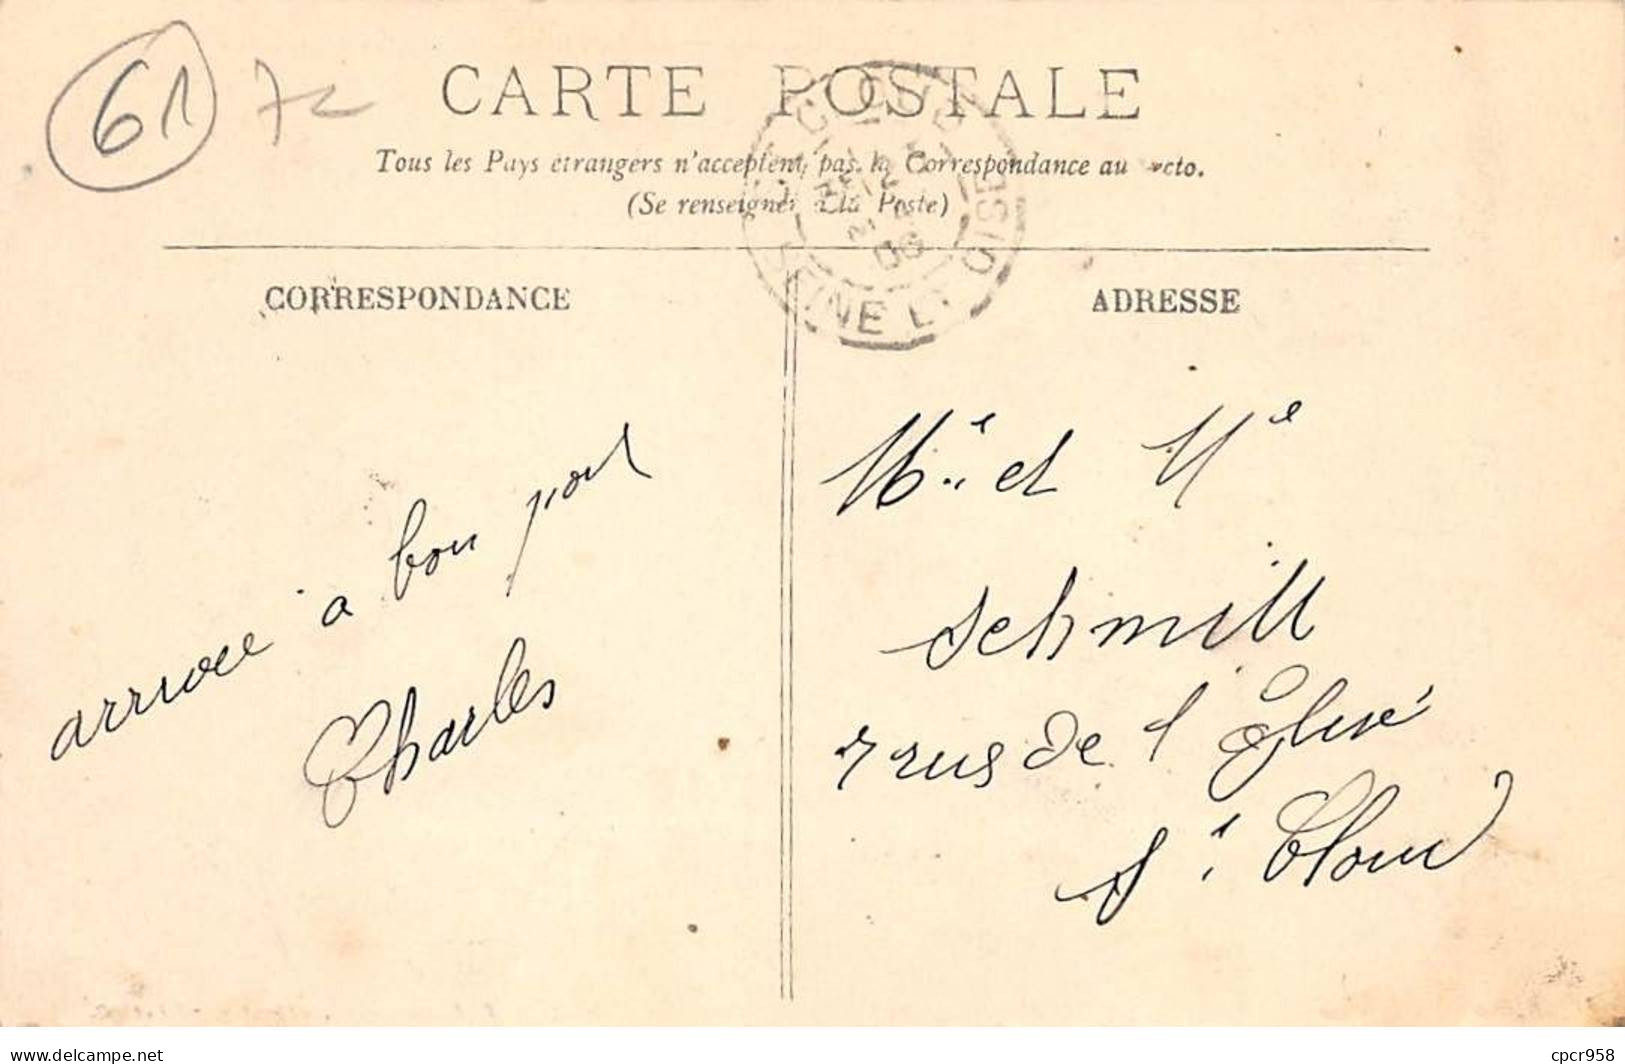 61
CARTE POSTALE
Tous les Pays étrangers n'acceptent pas la Correspondance au recto.
(Se renseigner à la Poste)
SEINE ET OISE
06
CORRESPONDANCE
ADRESSE
arrivée à bon port
Charles
Mr et Me
Schmitt
7 rue de l'Église
St Cloud
delcampe.net
cpcr958